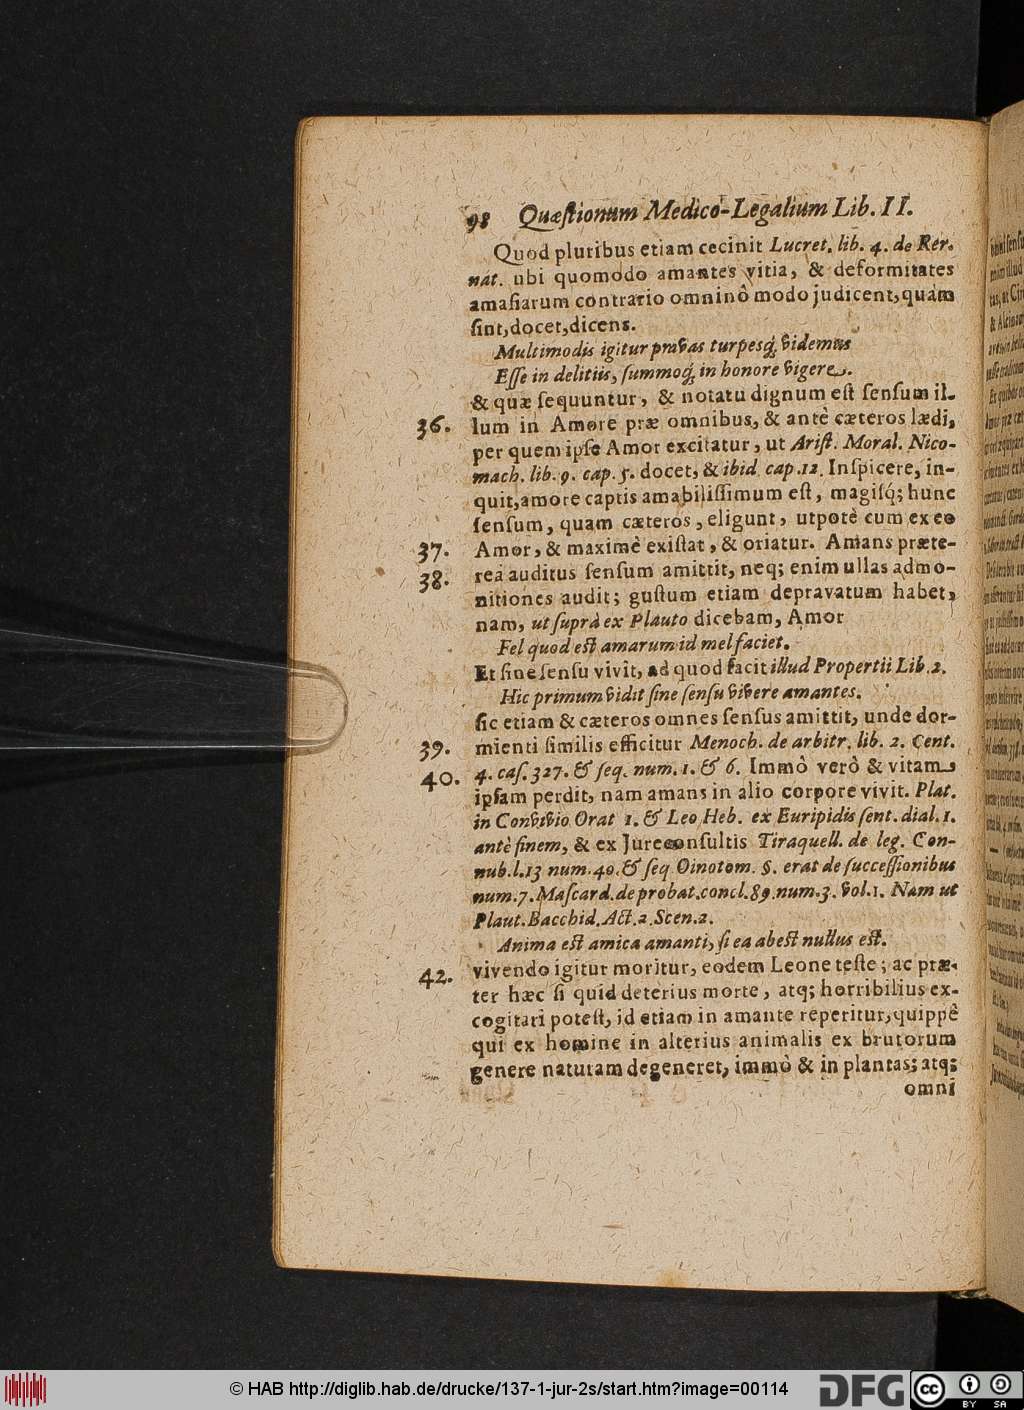 98 Quæſtionum Medico-Legalium Lib. II.
Quod pluribus etiam cecinit Lucret. lib. 4. de Rer.
nat. ubi quomodo amantes vitia, & deformitates
amaſiarum contrario omninô modo judicent, quàm
ſint, docet, dicens.
Multimodis igitur pravas turpesq́; videmus
Eſſe in delitiis, ſummoq́; in honore vigere.
& quæ ſequuntur, & notatu dignum eſt ſenſum il-
36. lum in Amore præ omnibus, & antè cæteros lædi,
per quem ipſe Amor excitatur, ut Ariſt. Moral. Nico-
mach. lib. 9. cap. 5. docet, & ibid. cap. 12. Inſpicere, in-
quit, amore captis amabiliſſimum eſt, magiſq́; hunc
ſenſum, quam cæteros, eligunt, utpotè cum ex eo
37. Amor, & maximè exiſtat, & oriatur. Amans præte-
38. reà auditus ſenſum amittit, neq; enim ullas admo-
nitiones audit; guſtum etiam depravatum habet,
nam, ut ſuprà ex Plauto dicebam, Amor
Fel quod eſt amarum id mel faciet.
Et ſine ſenſu vivit, ad quod facit illud Propertii Lib. 2.
Hic primum vidit ſine ſenſu vivere amantes.
ſic etiam & cæteros omnes ſenſus amittit, unde dor-
39. mienti ſimilis efficitur Menoch. de arbitr. lib. 2. Cent.
40. 4. caſ. 327. & ſeq. num. 1. & 6. Immò verò & vitam
ipſam perdit, nam amans in alio corpore vivit. Plat.
in Convivio Orat 1. & Leo Heb. ex Euripidis ſent. dial. 1.
antè finem, & ex Jureconſultis Tiraquell. de leg. Con-
nub. l. 13 num. 40. & ſeq Oinotom. §. erat de ſucceſſionibus
num. 7. Maſcard. de probat. concl. 89. num. 3. vol. 1. Nam ut
Plaut. Bacchid. Act. 2 Scen. 2.
Anima eſt amica amanti, ſi ea abeſt nullus eſt.
42. vivendo igitur moritur, eodem Leone teſte; ac præ-
ter hæc ſi quid deterius morte, atq; horribilius ex-
cogitari poteſt, id etiam in amante reperitur, quippè
qui ex homine in alterius animalis ex brutorum
genere naturam degeneret, immò & in plantas; atq;
omni
© HAB http://diglib.hab.de/drucke/137-1-jur-2s/start.htm?image=00114
DFG
cc BY SA